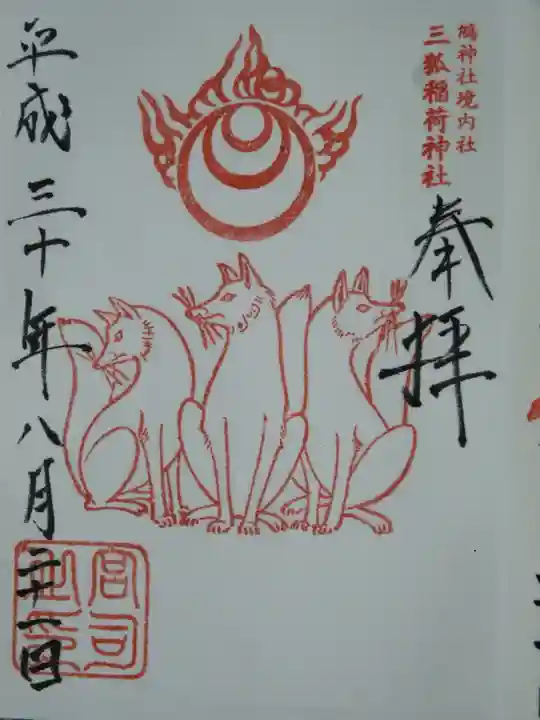 鴻神社境内社
三狐稲荷神社
奉拝
平成三十年八月二十一日
宮司
之印